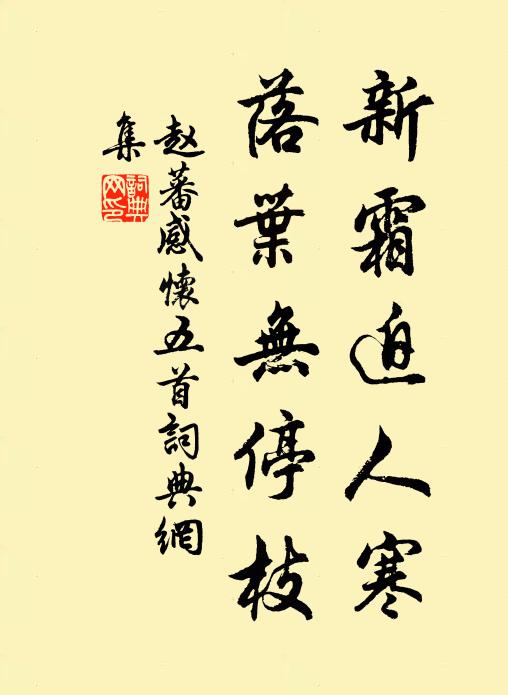 新霜迫人寒
落葉無停枝
赵蕃感懷五首詞典網
集
詞典
网印